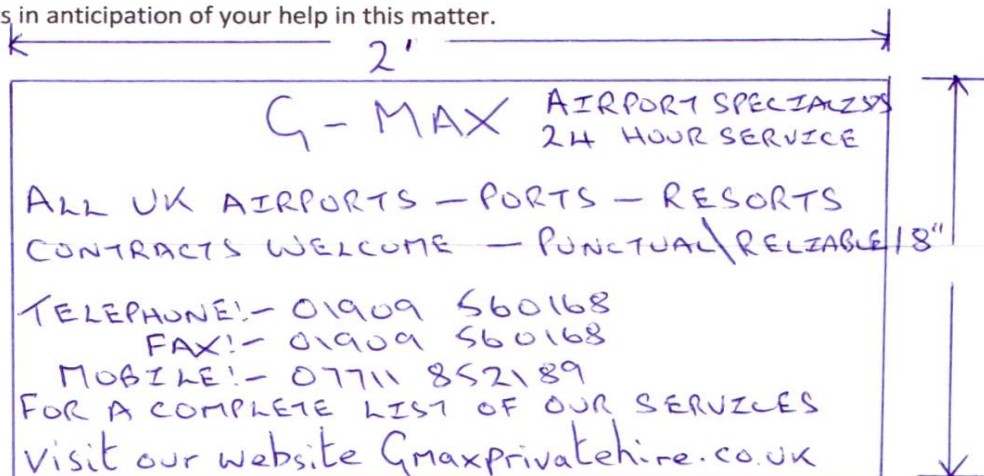 s in anticipation of your help in this matter.
2'
G-MAX AIRPORT SPECIALISTS
24 HOUR SERVICE
ALL UK AIRPORTS - PORTS - RESORTS
CONTRACTS WELCOME - PUNCTUAL\RELIABLE 18"
TELEPHONE:- 01909 560168
FAX:- 01909 560168
MOBILE:- 07711 852189
FOR A COMPLETE LIST OF OUR SERVICES
Visit our website Gmaxprivatehire.co.uk